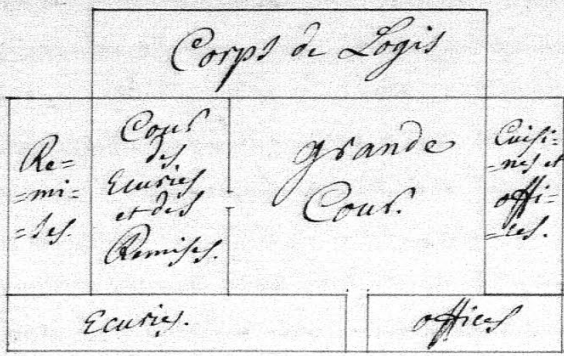 Corps de Logis
Re=
=mi=
=ses.
Cour
des
Ecuries
et des
Remises.
grande
Cour.
Cuisi=
=nes et
offi=
=ces.
Ecuries.
offices